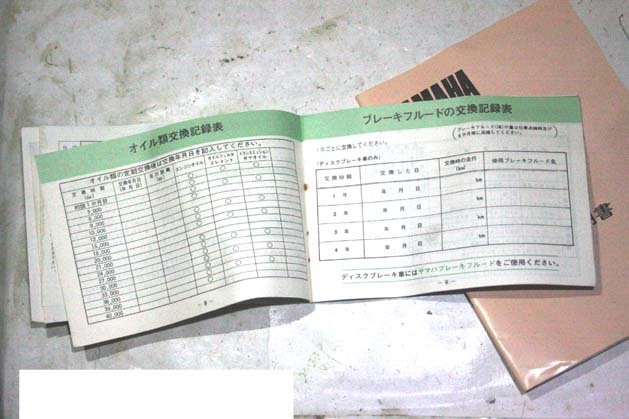 オイル類交換記録表
オイル類の定期交換後は交換年月日を記入してください。
交換時期
(km)
交換年月日
(年 月 日)
走行距離
(km)
エンジンオイル
オイルフィルタ
エレメント
トランスミッション
ギヤオイル
初回1か月目
3,000
6,000
9,000
10,000
12,000
15,000
18,000
20,000
21,000
24,000
27,000
30,000
33,000
36,000
39,000
40,000
ブレーキフルードの交換記録表
1年ごとに交換してください。
(ディスクブレーキ車のみ)
交換時期
交換した日
交換時の走行
(km)
使用ブレーキフルード名
1 年
年 月 日
km
2 年
年 月 日
km
3 年
年 月 日
km
4 年
年 月 日
km
ディスクブレーキ車にはヤマハブレーキフルードをご使用ください。
YAMAHA
書